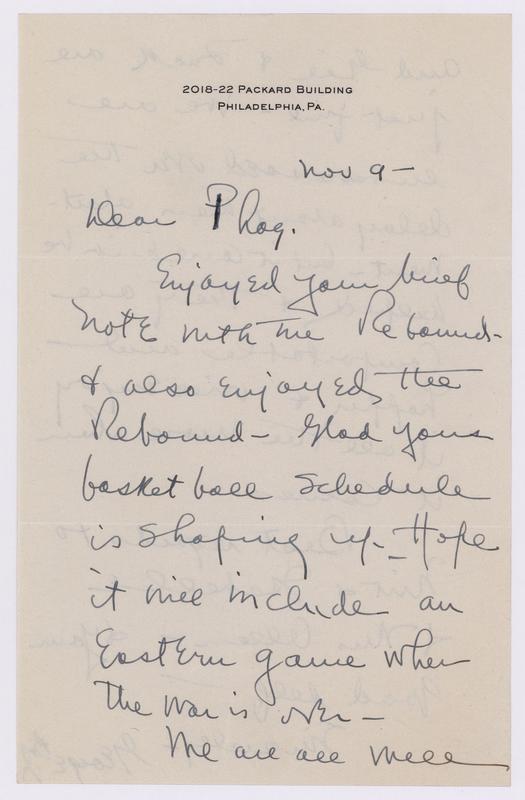 2018-22 PACKARD BUILDING
PHILADELPHIA, PA.
Nov 9-
Dear Phog.
Enjoyed your brief
note with the Rebound-
& also enjoyed the
Rebound - Glad your
basket ball schedule
is shaping up - Hope
it will include an
Eastern game when
the war is over -
We are all well